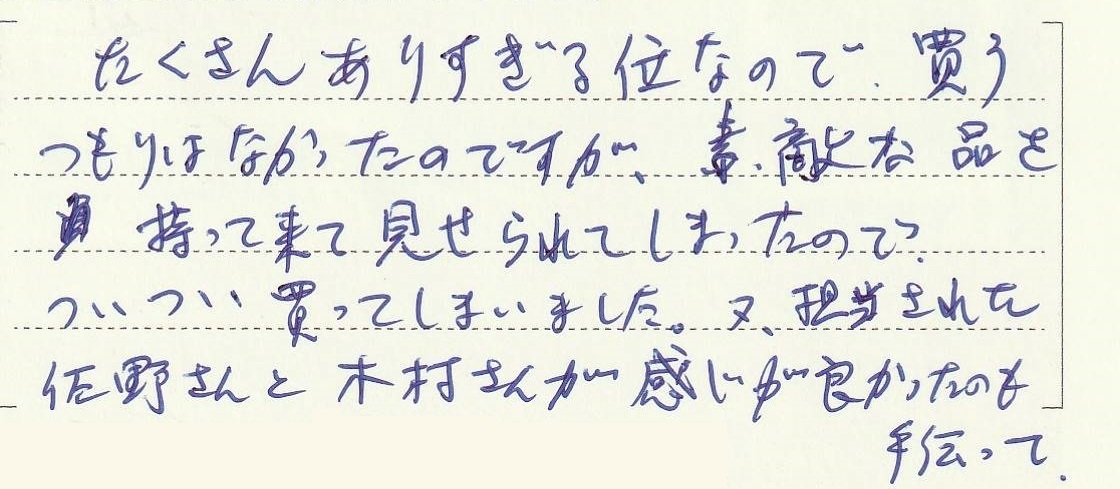 たくさんありすぎる位なので、買う
つもりはなかったのですが、素敵な品を
持って来て見せられてしまったので、
ついつい買ってしまいました。又、担当された
佐野さんと木村さんが感じが良かったのも
手伝って.